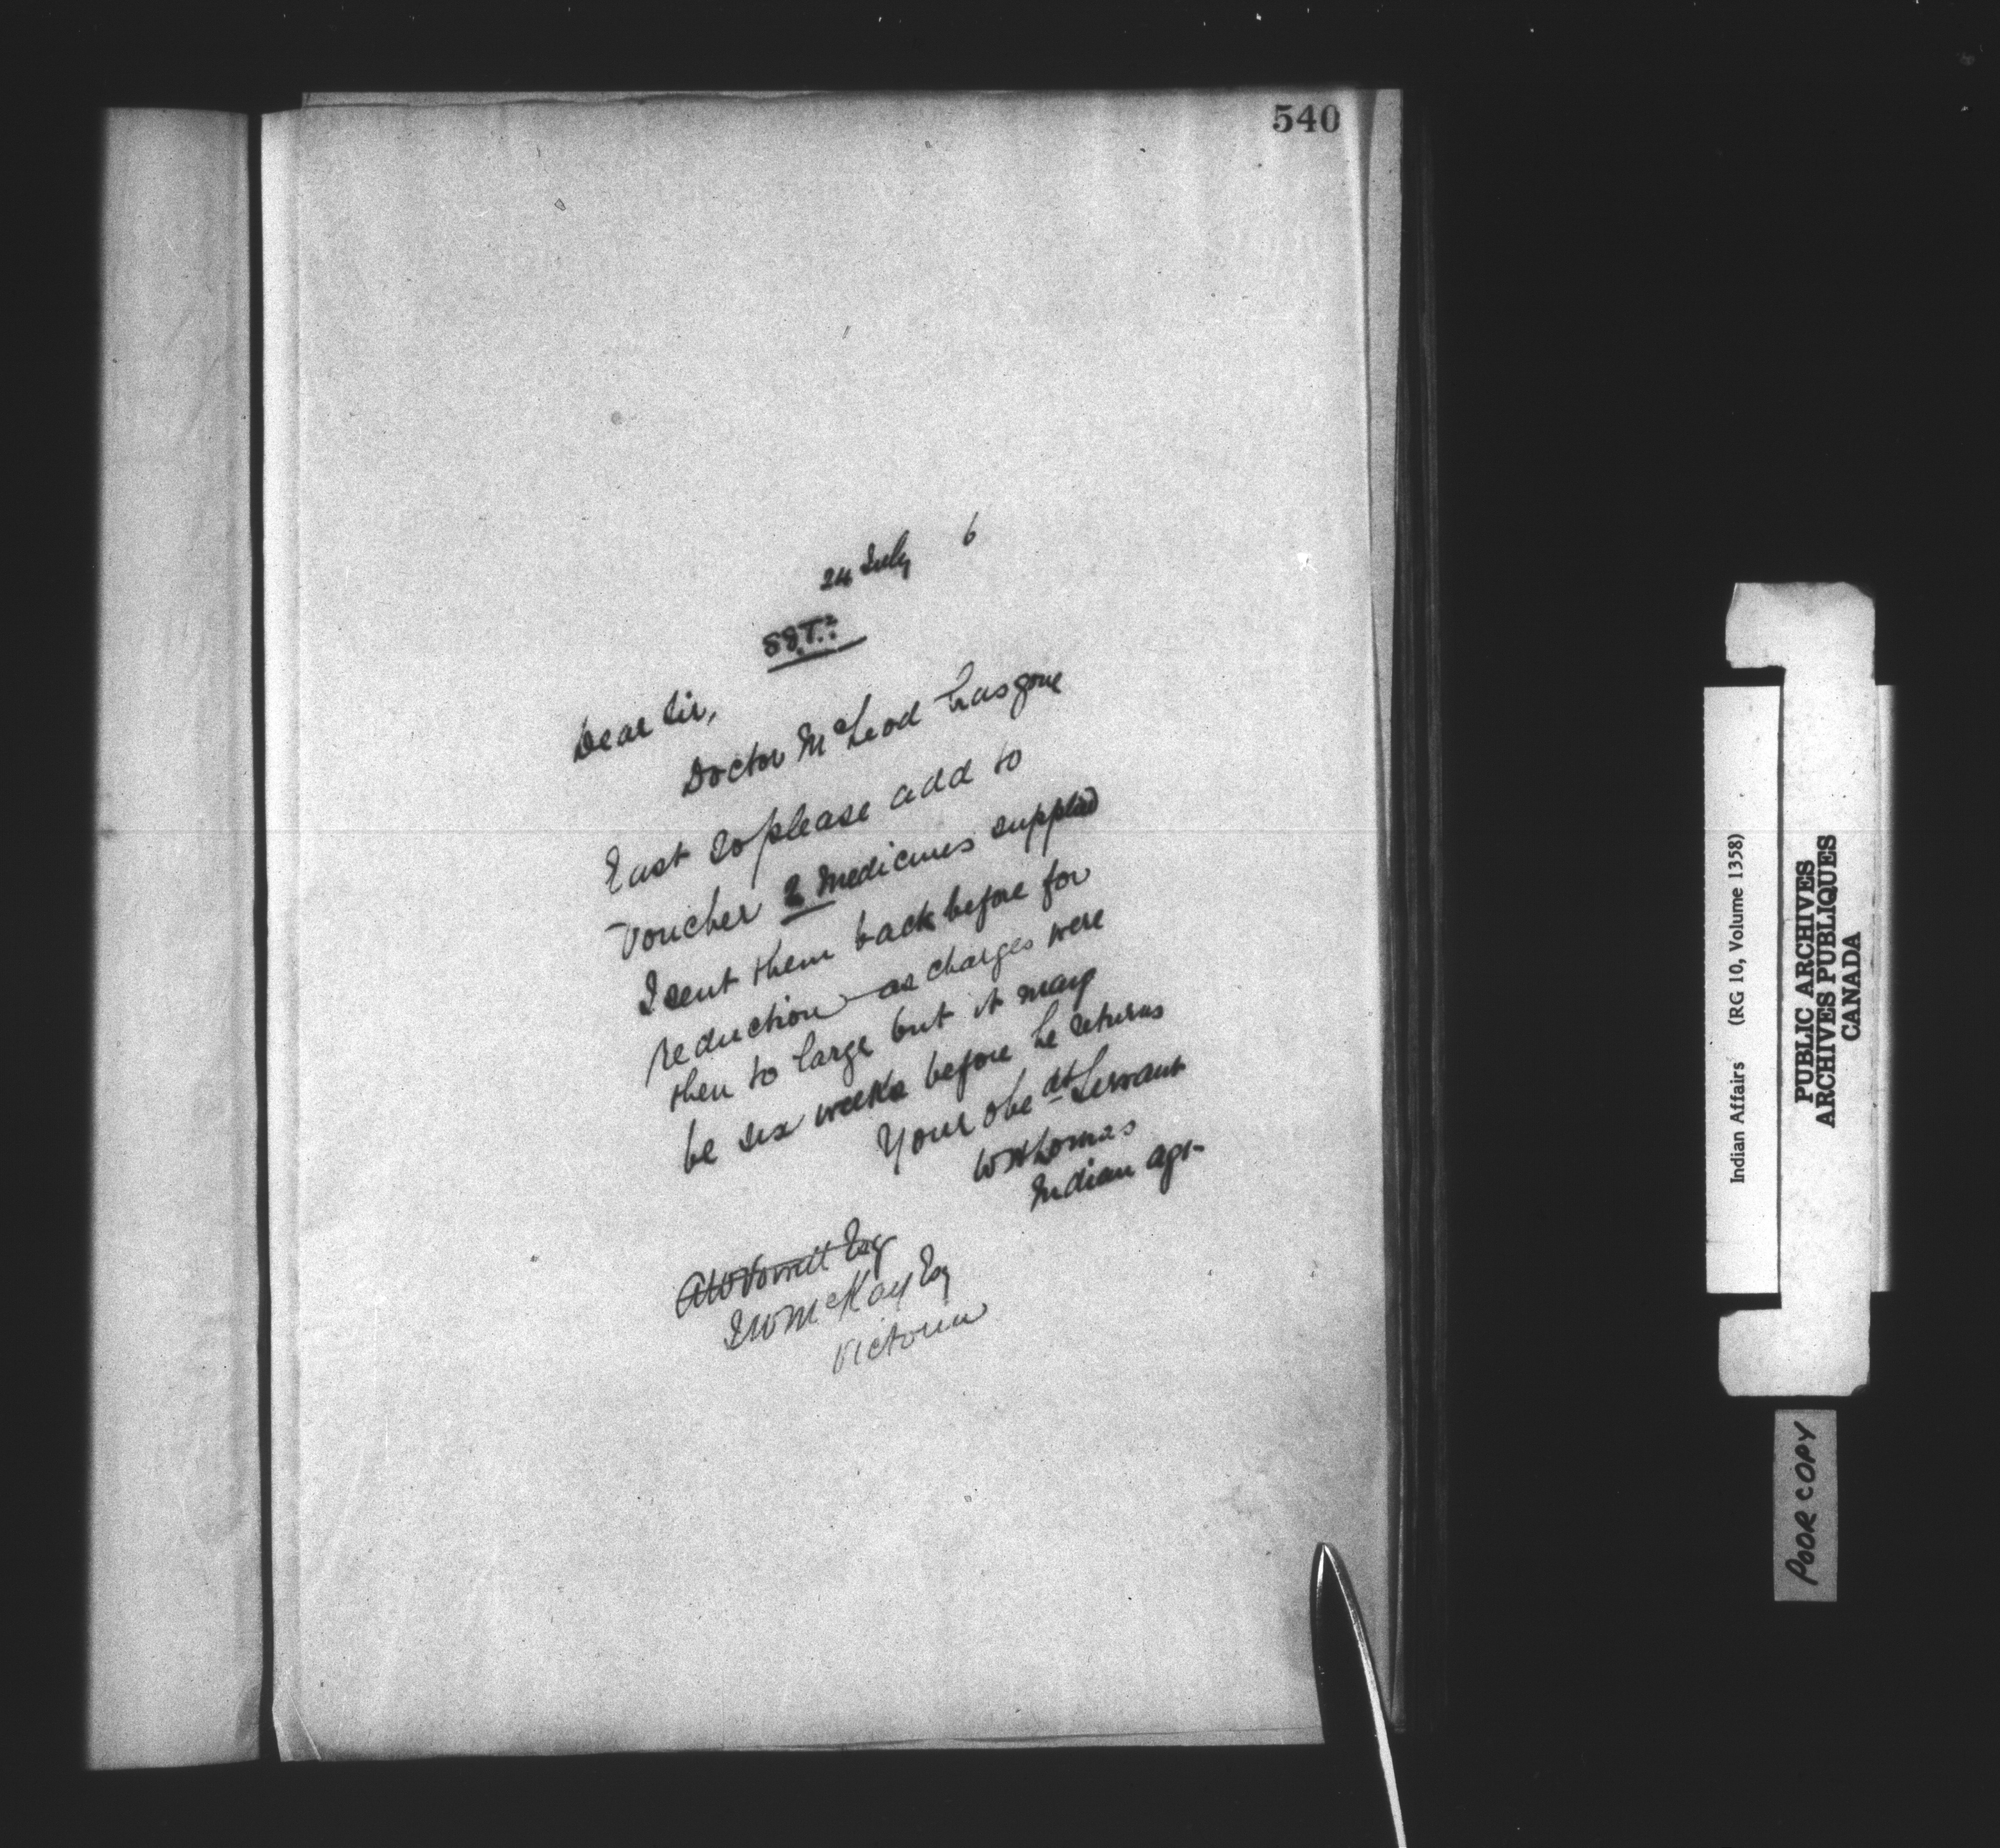 540
24 July 6
Dear Sir,
Doctor McLeod has gone
East so please add to
Voucher 2 medicines supplied
I sent them back before for
reduction — as charges were
then to large but it may
be six weeks before he returns
Your obedt Servant
WH Lomas
Indian Agt-
AW Vowell Esq
McKay Esq
Victoria
Indian Affairs (RG 10, Volume 1358)
PUBLIC ARCHIVES
ARCHIVES PUBLIQUES
CANADA
POOR COPY